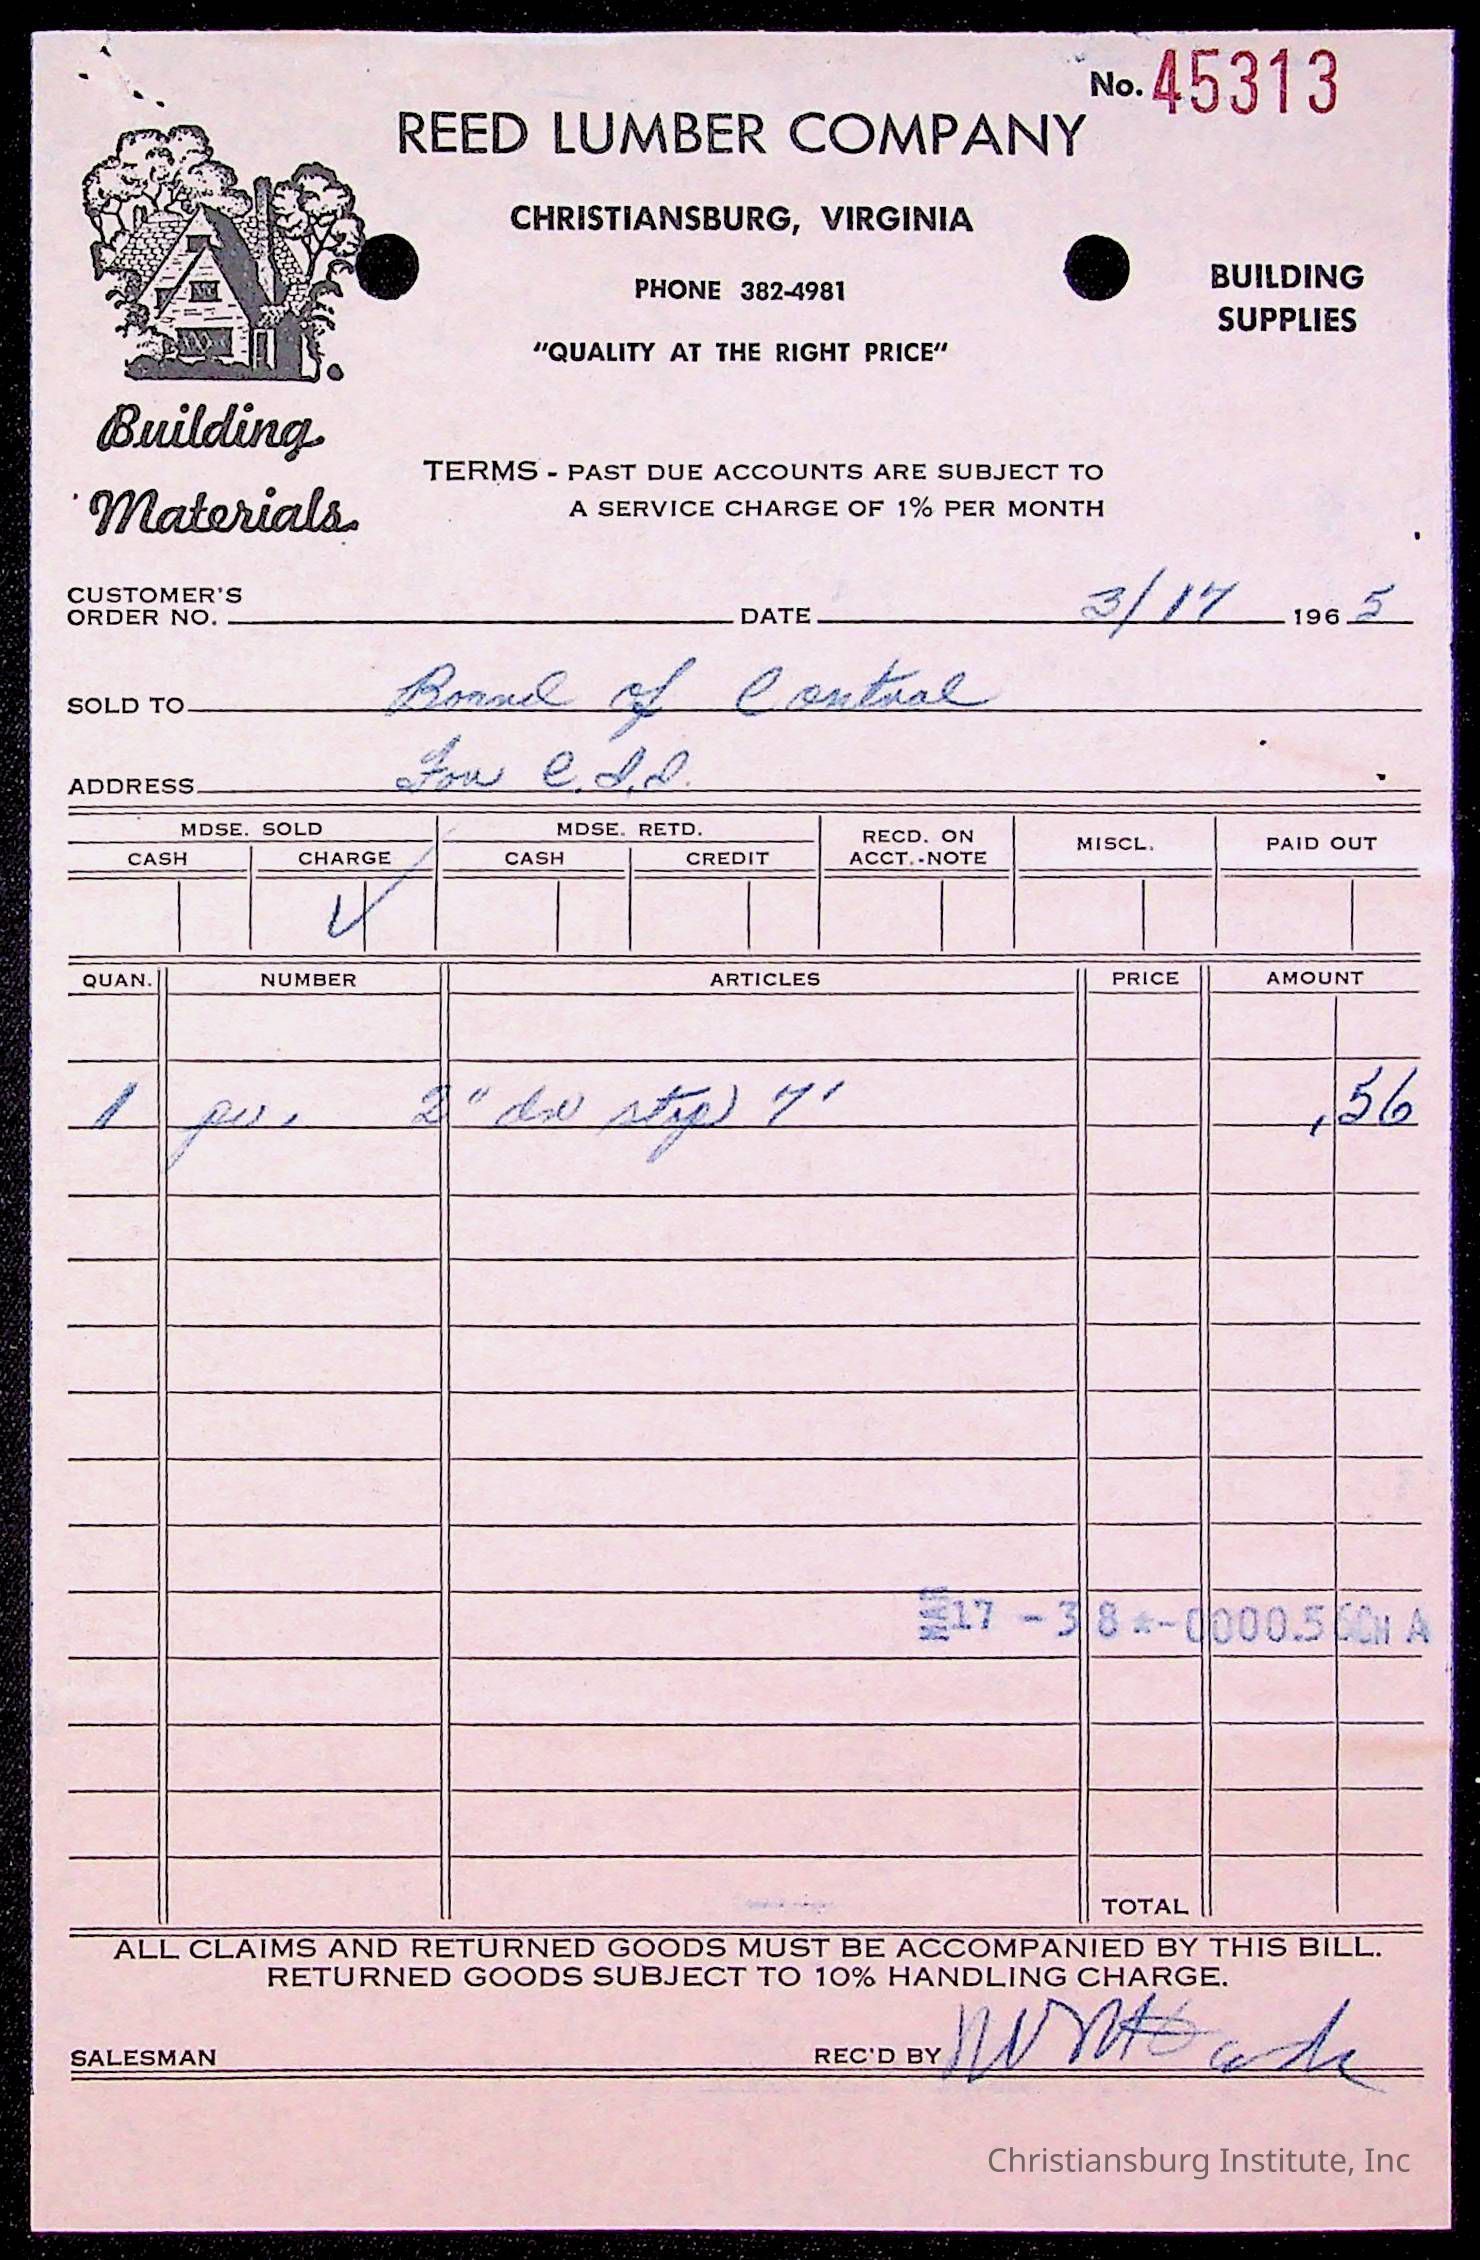 No. 45313
REED LUMBER COMPANY
CHRISTIANSBURG, VIRGINIA
PHONE 382-4981
"QUALITY AT THE RIGHT PRICE"
BUILDING
SUPPLIES
Building
Materials
TERMS - PAST DUE ACCOUNTS ARE SUBJECT TO
A SERVICE CHARGE OF 1% PER MONTH
CUSTOMER'S
ORDER NO. DATE 3/17 1965
SOLD TO of Control
ADDRESS For C.I.I.
MDSE. SOLD MDSE. RETD. RECD. ON ACCT.-NOTE MISCL. PAID OUT
CASH CHARGE CASH CREDIT
QUAN. NUMBER ARTICLES PRICE AMOUNT
1 2" 7' .56
MAR 17 - 38 *-0000.56CH A
TOTAL
ALL CLAIMS AND RETURNED GOODS MUST BE ACCOMPANIED BY THIS BILL.
RETURNED GOODS SUBJECT TO 10% HANDLING CHARGE.
SALESMAN REC'D BY
Christiansburg Institute, Inc